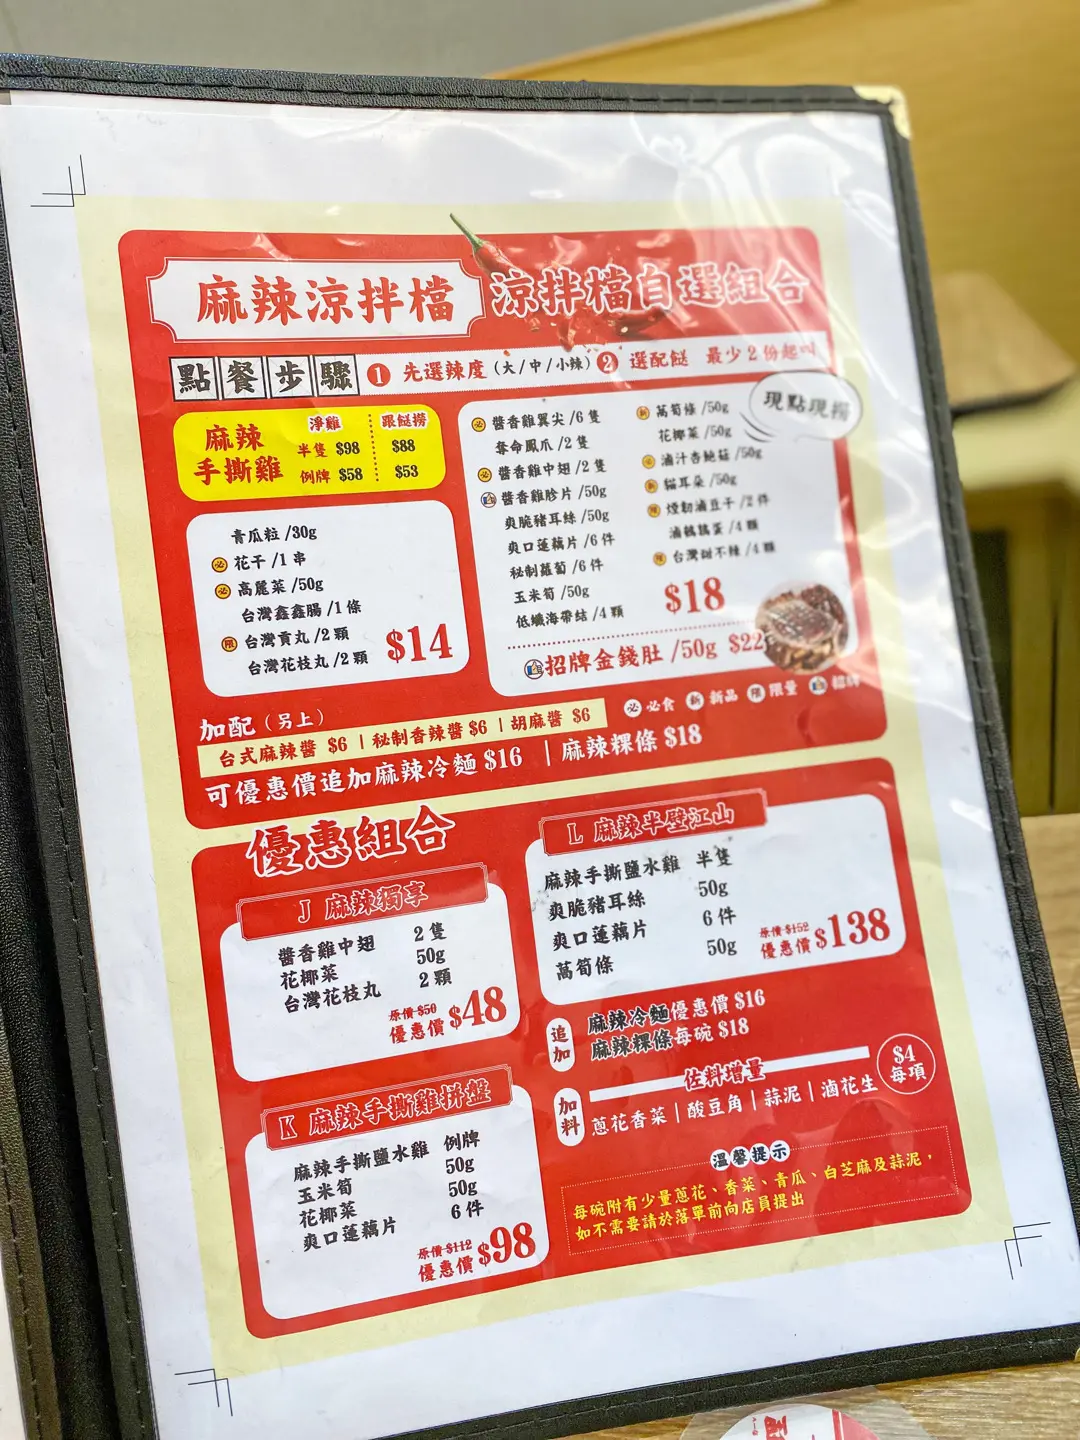 麻辣涼拌檔 涼拌檔自選組合
點餐步驟 1 先選辣度(大/中/小辣) 2 選配餸 最少2份起叫
現點現撈
麻辣手撕雞
淨雞 跟餸撈
半隻 $98 $88
例牌 $58 $53
青瓜粒/30g
必 花干/1串
必 高麗菜/50g
台灣鑫鑫腸/1條
限 台灣貢丸/2顆
台灣花枝丸/2顆
$14
必 醬香雞翼尖/6隻
奪命鳳爪/2隻
必 醬香雞中翅/2隻
醬香雞胗片/50g
爽脆豬耳絲/50g
爽口蓮藕片/6件
秘制蘿蔔/6件
玉米筍/50g
低孅海帶結/4顆
新 萵筍條/50g
花椰菜/50g
必 滷汁杏鮑菇/50g
新 貓耳朵/50g
限 煙韌滷豆干/2件
滷鵪鶉蛋/4顆
限 台灣甜不辣/4顆
$18
招牌金錢肚/50g $22
必 必食 新 新品 限 限量 招牌
加配(另上)
台式麻辣醬 $6 | 秘制香辣醬 $6 | 胡麻醬 $6
可優惠價追加麻辣冷麵 $16 | 麻辣粿條 $18
優惠組合
J 麻辣獨享
醬香雞中翅 2隻
花椰菜 50g
台灣花枝丸 2顆
原價 $50
優惠價 $48
K 麻辣手撕雞拼盤
麻辣手撕鹽水雞 例牌
玉米筍 50g
花椰菜 50g
爽口蓮藕片 6件
原價 $112
優惠價 $98
L 麻辣半壁江山
麻辣手撕鹽水雞 半隻
爽脆豬耳絲 50g
爽口蓮藕片 6件
萵筍條 50g
原價 $152
優惠價 $138
追加
麻辣冷麵優惠價 $16
麻辣粿條每碗 $18
佐料增量
$4每項
加料
蔥花香菜 | 酸豆角 | 蒜泥 | 滷花生
溫馨提示
每碗附有少量蔥花、香菜、青瓜、白芝麻及蒜泥，
如不需要請於落單前向店員提出